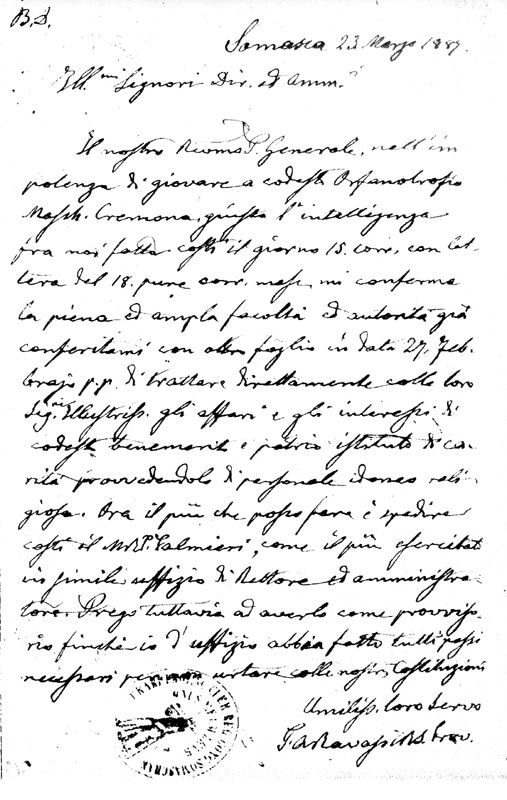 B.D.
Somasca 23 Marzo 1889.
Ill.mi Signori Dir. ed Amm.i
Il nostro Revmo P. Generale, nell'im
potenza di giovare a codesto Orfanotrofio
Masch. Cremona, giusta l'intelligenza
fra noi fatta costì il giorno 15. corr., con let-
tera del 18. pure corr. mese, mi conferma
la piena ed ampla facoltà ed autorità già
conferitami con altro foglio in data 27. Feb-
brajo p.p. di trattare direttamente colle loro
Sig.rie Illustriss. gli affari e gli interessi di
codesto benemerito e patrio istituto di ca-
rità provvedendolo di personale idoneo reli-
gioso. Ora il più che posso fare è spedire
costì il M.R.P. Palmieri, come il più esercitato
in simile uffizio di Rettore ed amministra-
tore. Prego tuttavia ad averlo come provviso-
rio finchè io d'uffizio abbia fatto tutti passi
necessari per non urtare colle nostre Costituzioni
Umiliss. loro Servo